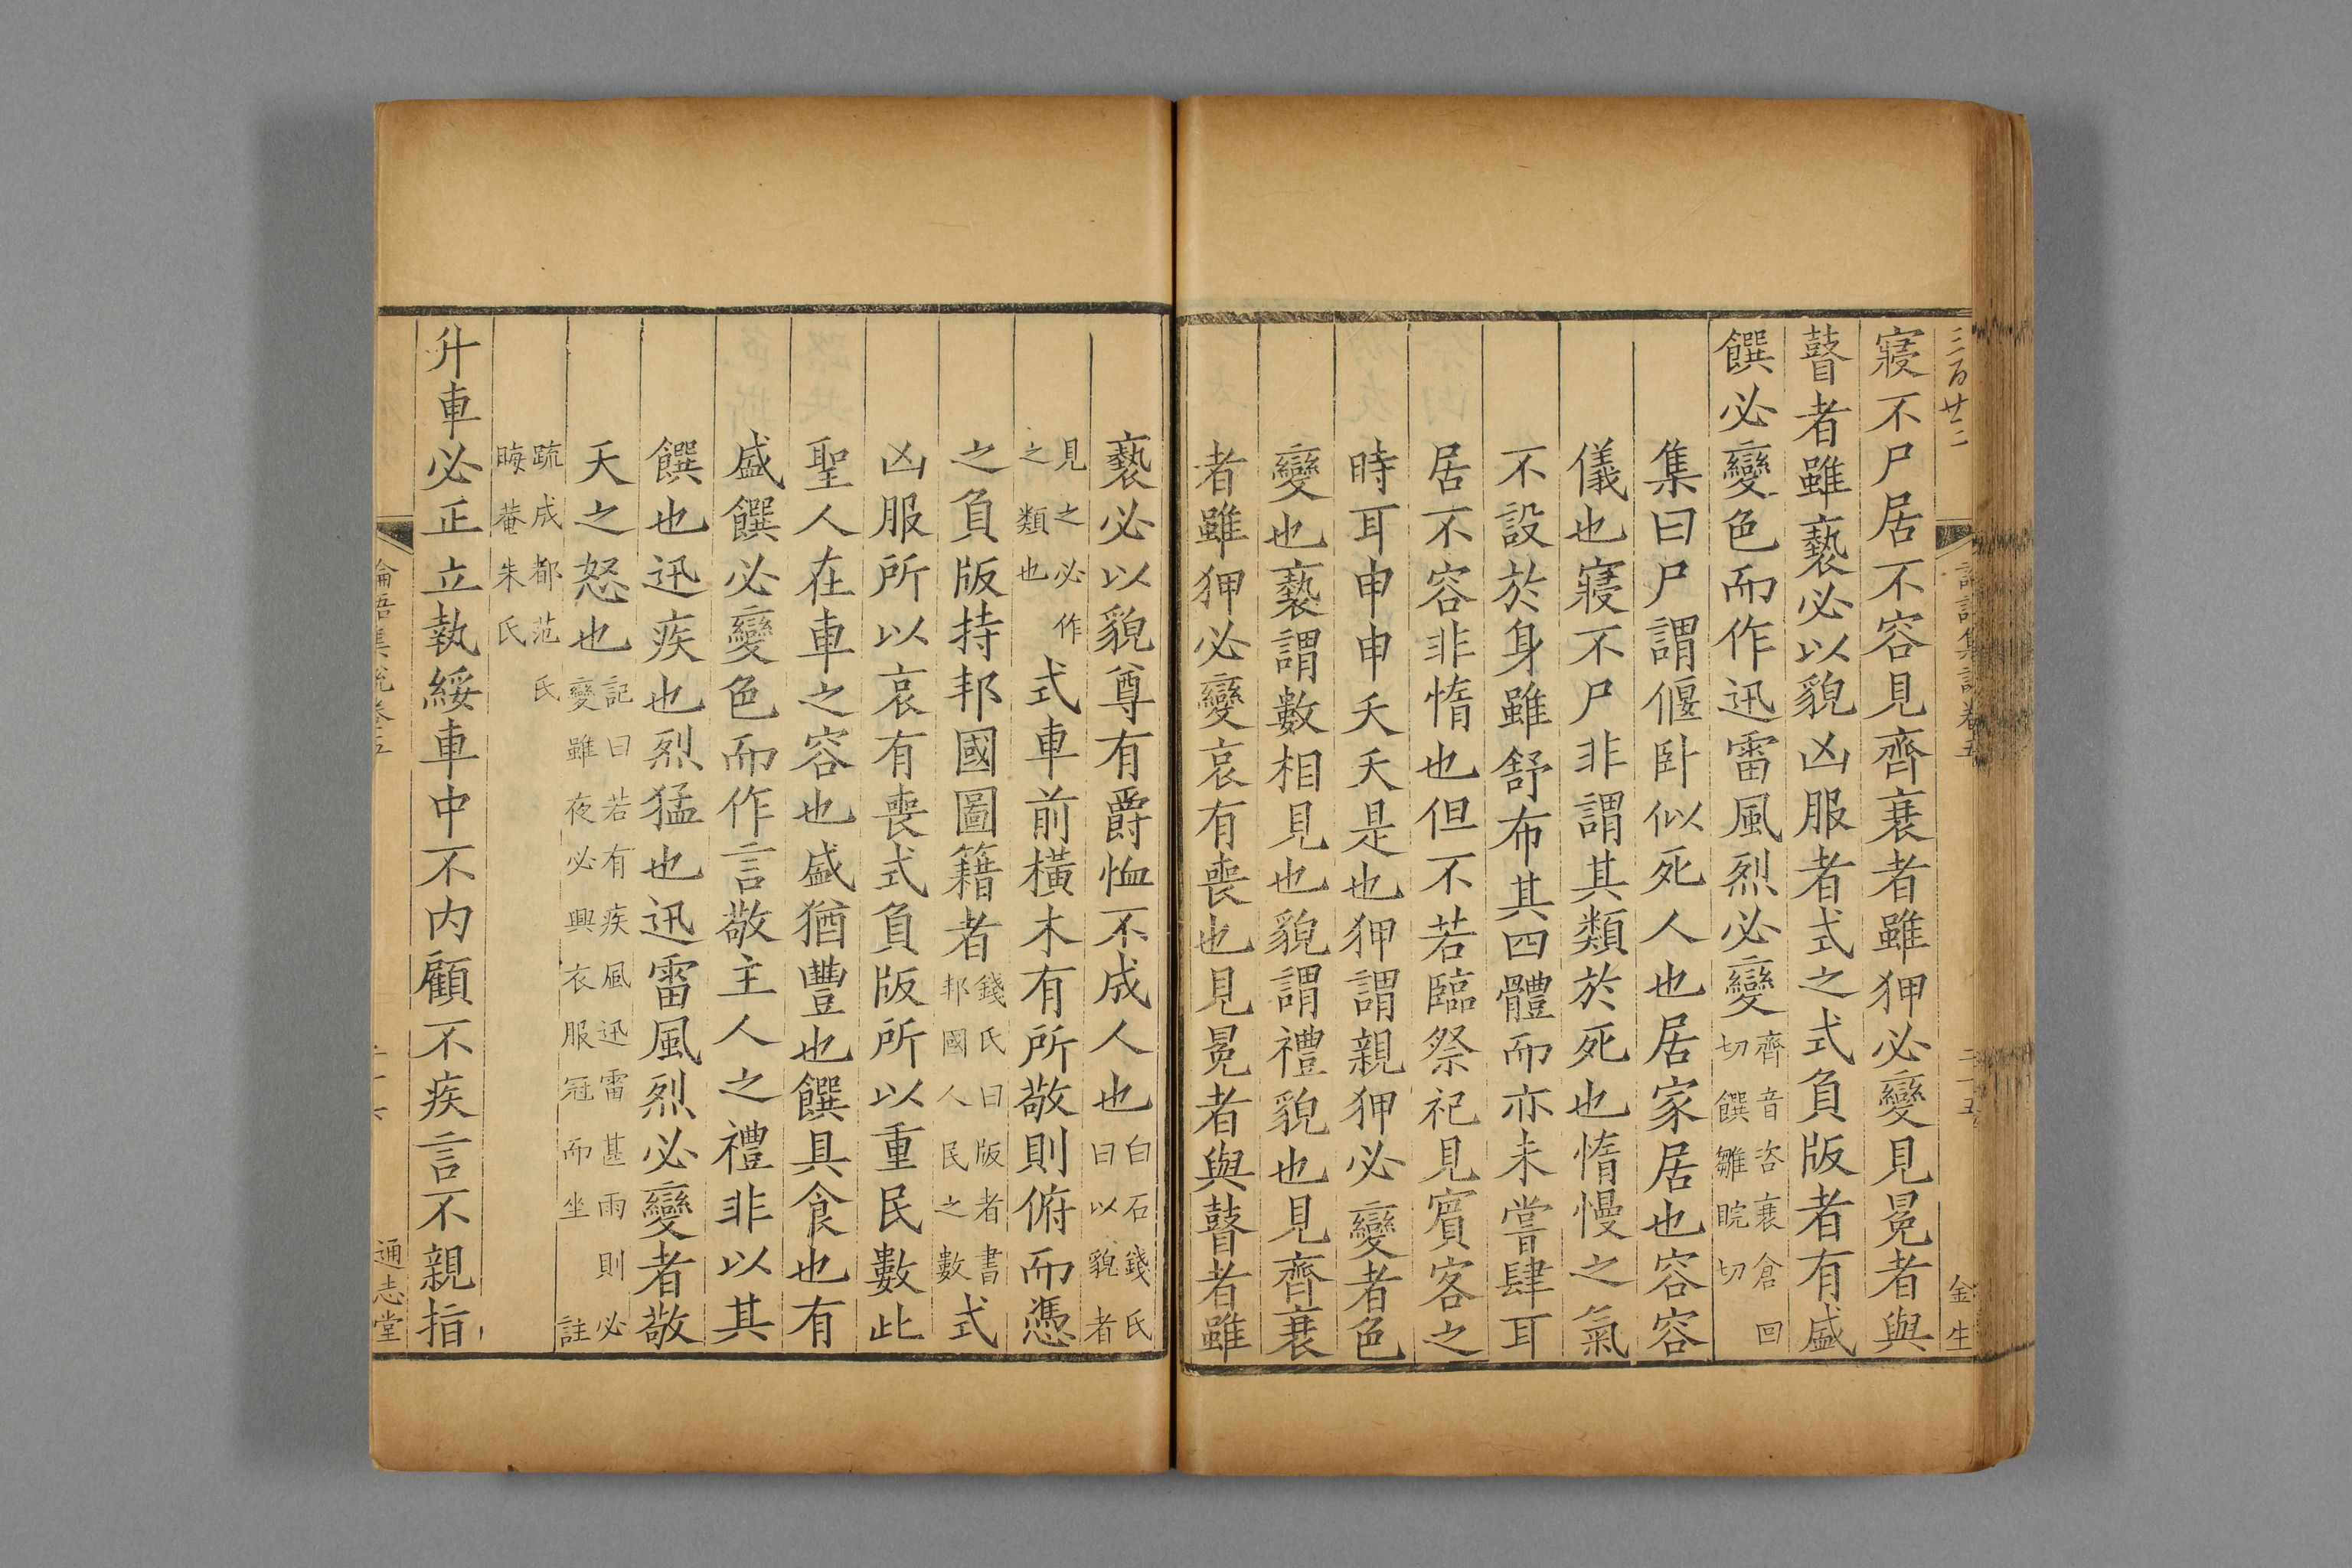 三百廿二
金生
寢不尸居不容見齊衰者雖狎必變見冕者與
瞽者雖褻必以貌凶服者式之式負版者有盛
饌必變色而作迅雷風烈必變齊音咨衰倉回
切饌雛睆切
集曰尸謂偃卧似死人也居家居也容容
儀也寢不尸非謂其類於死也惰慢之氣
不設於身雖舒布其四體而亦未嘗肆耳
居不容非惰也但不若臨祭祀見賓客之
時耳申申夭夭是也狎謂親狎必變者色
變也褻謂數相見也貌謂禮貌也見齊衰
者雖狎必變哀有喪也見冕者與瞽者雖
褻必以貌尊有爵恤不成人也白石錢氏
曰以貌者
見之必作
之類也式車前橫木有所敬則俯而憑
之負版持邦國圖籍者錢氏曰版者書
邦國人民之數式
凶服所以哀有喪式負版所以重民數此
聖人在車之容也盛猶豐也饌具食也有
盛饌必變色而作言敬主人之禮非以其
饌也迅疾也烈猛也迅雷風烈必變者敬
天之怒也記曰若有疾風迅雷甚雨則必
變雖夜必興衣服冠而坐註
疏成都范氏
晦菴朱氏
升車必正立執綏車中不内顧不疾言不親指
論語集說卷五
通志堂